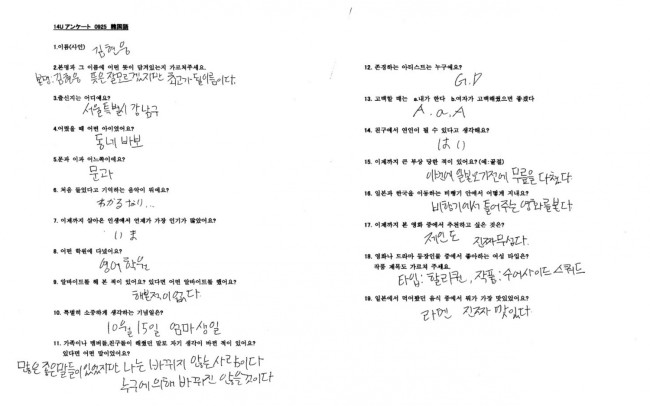 14U アンケート 0925 韓国語
1.이름(사인)
김현웅
2.본명과 그 이름에 어떤 뜻이 담겨있는지 가르쳐주세요.
본명.김현웅 뜻은 잘모르겠지만 최고가 될이름이다.
3.출신지는 어디예요?
서울특별시 강남구
4.어렸을 때 어떤 아이였어요?
동네 바보
5.문과 이과 어느쪽이예요?
문과
6.처음 들었다고 기억하는 음악이 뭐예요?
わかるない...
7.이제까지 살아온 인생에서 언제가 가장 인기가 많았어요?
いま
8.어떤 학원에 다녔어요?
영어 학원
9.알바이트를 해 본 적이 있어요? 있다면 어떤 알바이트를 했어요?
해본적이 없다.
10.특별히 소중하게 생각하는 기념일은?
10월 15일 엄마 생일
11.가족이나 멤버들,친구들이 해줬던 말로 자기 생각이 바뀐 적이 있어요?
있다면 어떤 말이었어요?
많은 좋은말들이 있었지만 나는 바뀌지 않는 사람이다
누구에 의해 바뀌진 않을것이다
12.존경하는 아티스트는 누구예요?
G.D
13.고백할 때는 a.내가 한다 b.여자가 고백해줬으면 좋겠다
A. a, A
14.친구에서 연인이 될 수 있다고 생각해요?
はい
15.이제까지 큰 부상 당한 적이 있어요?(예:골절)
이번에 일본오기전에 무릎을 다쳤다
16.일본과 한국을 이동하는 비행기 안에서 어떻게 지내요?
비행기에서 틀어주는 영화를본다
17.이제까지 본 영화 중에서 추천하고 싶은 것은?
제인도 진짜무섭다.
18.영화나 드라마 등장인물 중에서 좋아하는 여성 타입은?
작품 제목도 가르쳐 주세요.
타입: 할리퀸, 작품: 수어사이드 스쿼드
19.일본에서 먹어봤던 음식 중에서 뭐가 가장 맛있었어요?
라멘 진짜 맛있다